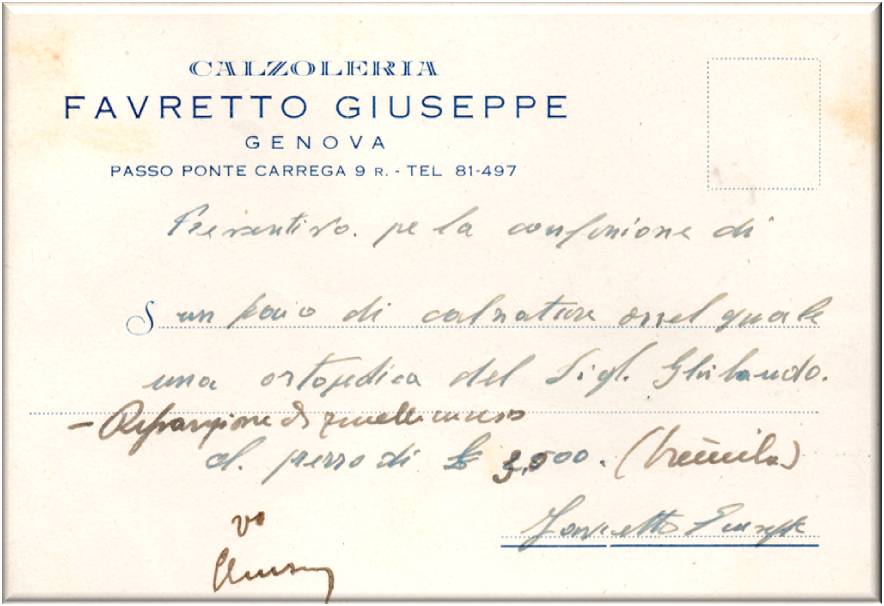 CALZOLERIA
FAVRETTO GIUSEPPE
GENOVA
PASSO PONTE CARREGA 9 R. - TEL 81-497
Preventivo. pe la confezione di
S un paio di calzature del quale
una ortopedica del Sig. Ghilardo.
- Riparazione di
al prezzo di £ 3,000. (tremila)
Favretto Giuseppe
vo